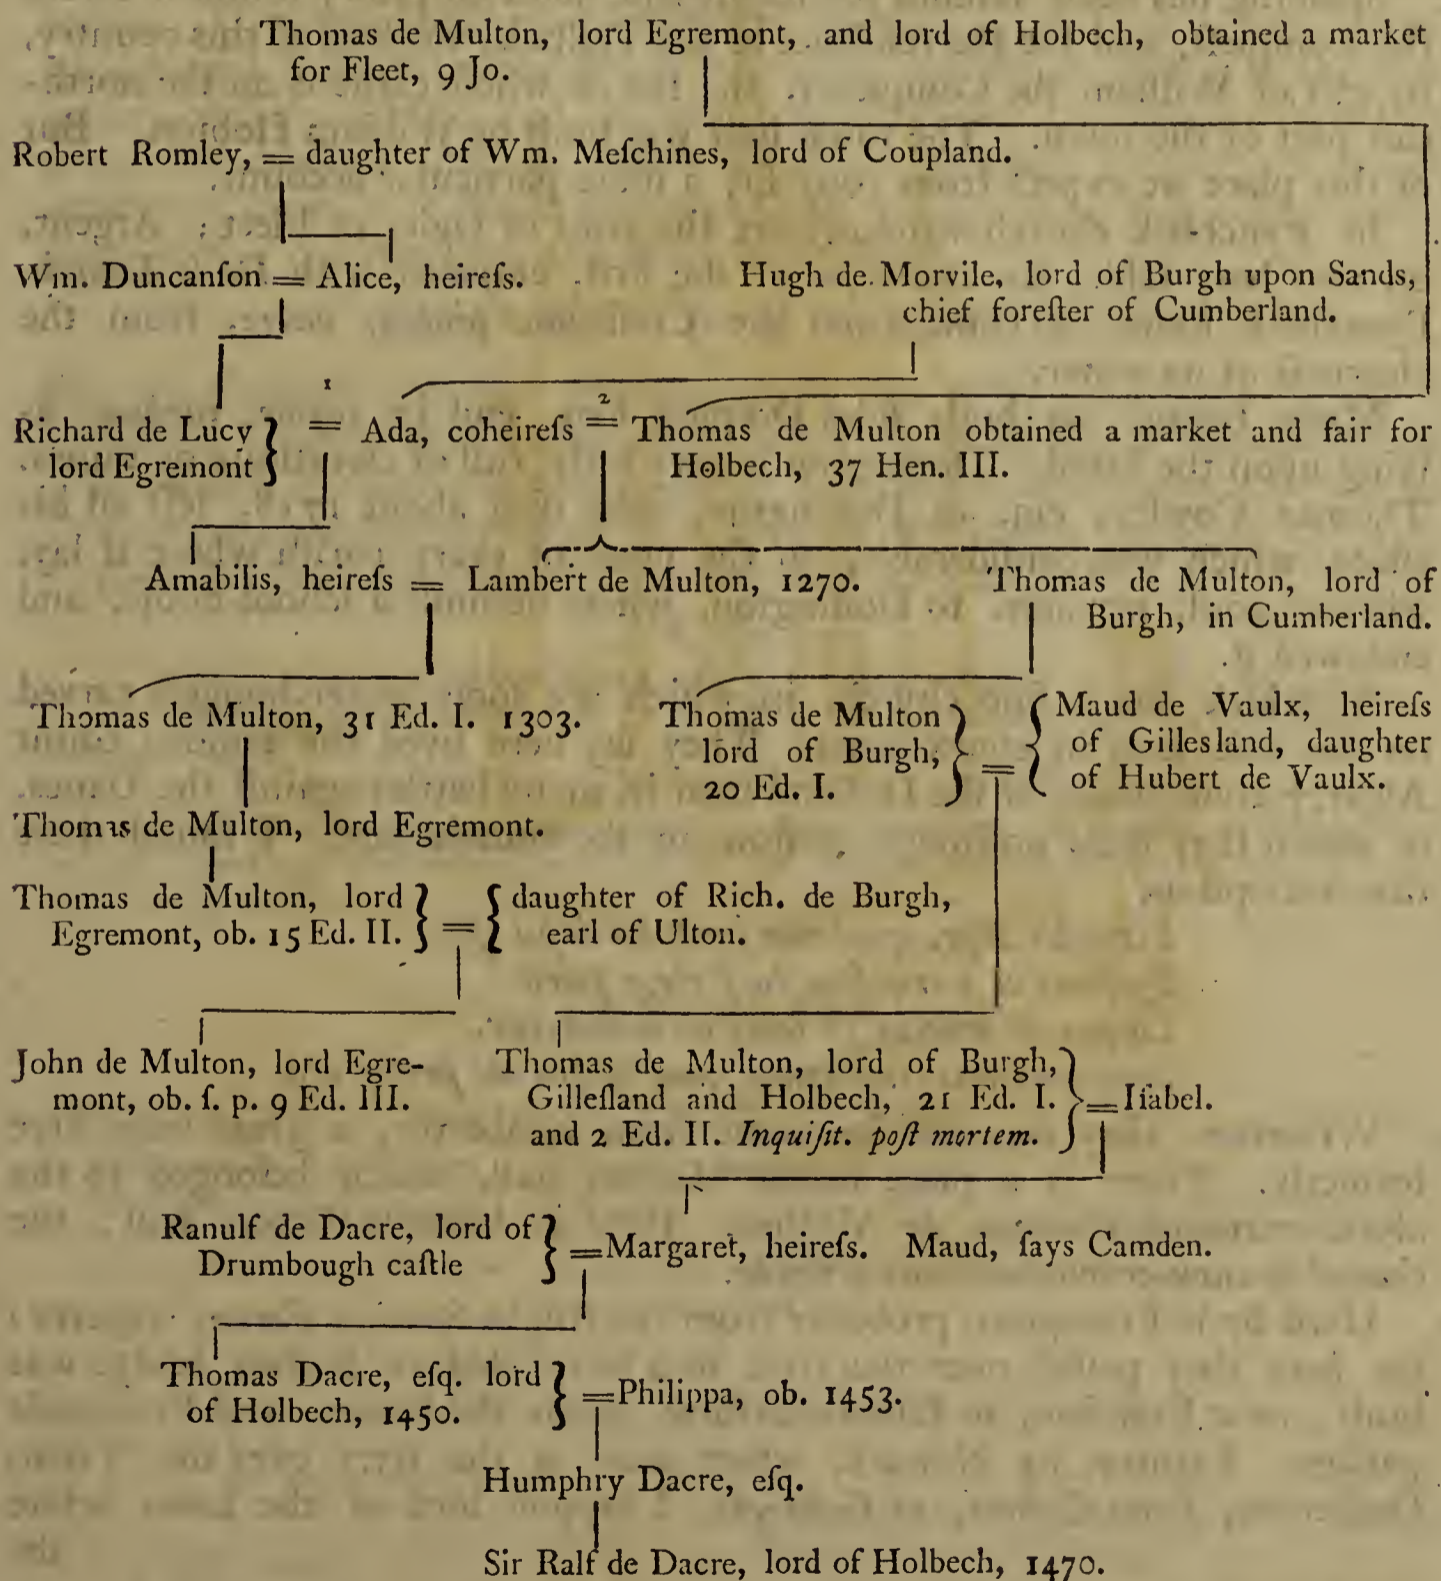 Thomas de Multon, lord Egremont, and lord of Holbech, obtained a market
for Fleet, 9 Jo.
Robert Romley, = daughter of Wm. Meſchines, lord of Coupland.
Wm. Duncanſon = Alice, heireſs.
Hugh de Morvile, lord of Burgh upon Sands,
chief foreſter of Cumberland.
Richard de Lucy } 1 = Ada, coheireſs 2 = Thomas de Multon obtained a market and fair for
lord Egremont
Holbech, 37 Hen. III.
Amabilis, heireſs = Lambert de Multon, 1270.
Thomas de Multon, lord of
Burgh, in Cumberland.
Thomas de Multon, 31 Ed. I. 1303.
Thomas de Multon
lord of Burgh,
20 Ed. I.
} = {
Maud de Vaulx, heireſs
of Gillesland, daughter
of Hubert de Vaulx.
Thomas de Multon, lord Egremont.
Thomas de Multon, lord
Egremont, ob. 15 Ed. II.
} = {
daughter of Rich. de Burgh,
earl of Ulton.
John de Multon, lord Egre-
mont, ob. ſ. p. 9 Ed. III.
Thomas de Multon, lord of Burgh,
Gilleſland and Holbech, 21 Ed. I.
and 2 Ed. II. Inquiſit. poſt mortem.
} = Iſabel.
Ranulf de Dacre, lord of
Drumbough caſtle
} = Margaret, heireſs. Maud, ſays Camden.
Thomas Dacre, eſq. lord
of Holbech, 1450.
} = Philippa, ob. 1453.
Humphry Dacre, eſq.
Sir Ralf de Dacre, lord of Holbech, 1470.